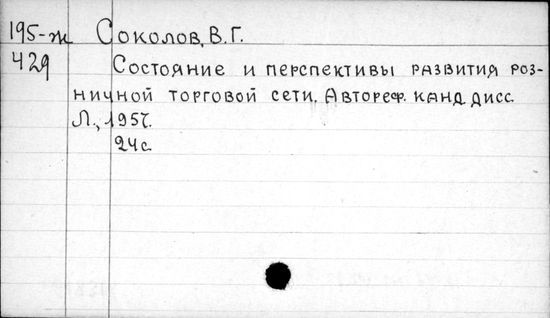 195-ж Соколов, В.Г.
429 Состояние и перспективы развития роз-
ничной торговой сети. Автореф. канд. дисс.
Л., 1957.
24с.